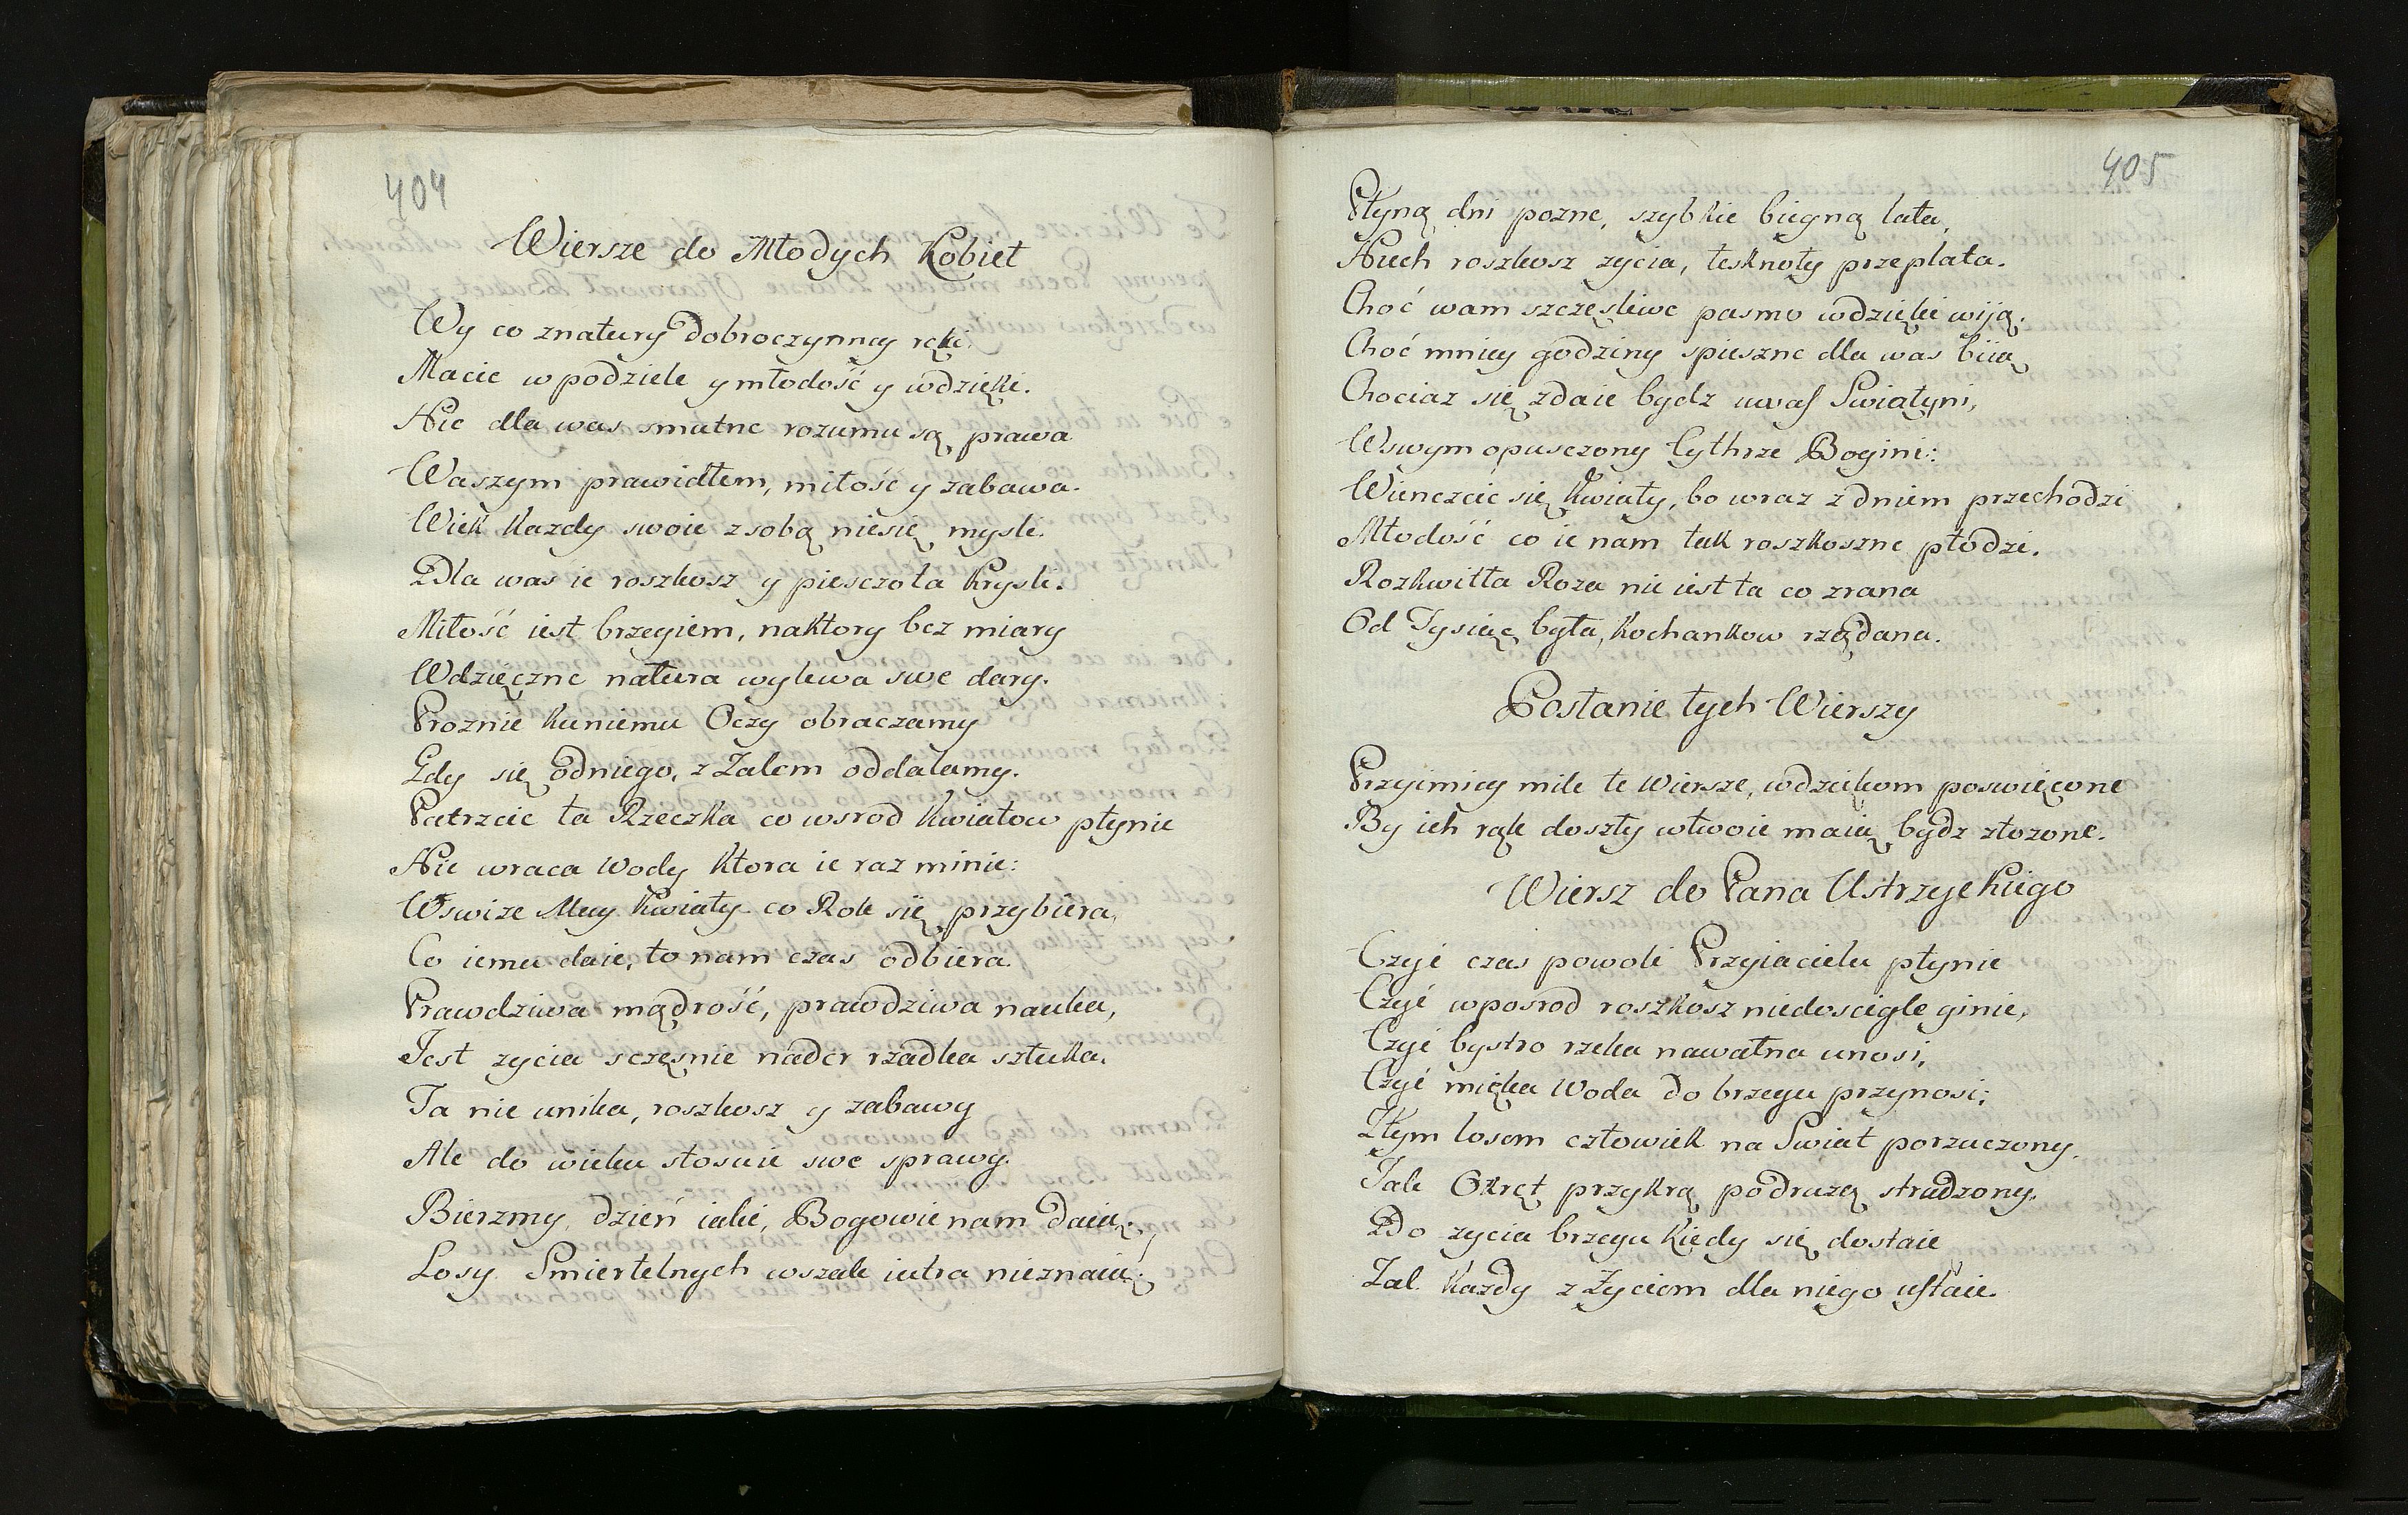 404
Wiersze do Młodych Kobiet
Wy co znatury dobroczynney ręki.
Macie w podziele y młodość y wdzięki.
Nie dla was smutne rozumu są prawa
Waszym prawidłem, miłość y zabawa.
Wiek Kazdy swoie zsobą niesię mysli.
Dla was ie roszkosz y piesczota Krysli.
Miłość iest brzegiem, naktory bez miary
Wdzięczne natura wylewa swe dary.
Proznie kuniemu Oczy obraczamy
Gdy się odniego, z Zalem oddalamy.
Patrzcie ta Rzeczka co wsrod Kwiatow płynie
Nie wraca Wody Ktora ie raz minie:
Wswize May Kwiaty co Rok się przybiera,
Co iemu daie, to nam czas odbiera.
Prawdziwa mądrość, prawdziwa nauka,
Jest zycia sczęsnie nader rzadka sztuka.
Ta nie unika, roszkosz y zabawy
Ale do wieku stosuie swe sprawy.
Bierzmy dzień iaki, Bogowie nam daią;
Losy Smiertelnych wszak iutra nieznaią;
405
Płyną dni pozne, szybkie biegną lata,
Niech roszkosz zycia, tesknoty przeplata.
Choć wam szczęsliwe pasmo wdzięki wiją.
Choć mniey godziny spieszne dla was biią
Chociaz się zdaie bydz uwas Swiatyni,
Wswym opusczony Cythrze Bogini:
Wienczcie się Kwiaty, bo wraz z dniem przechodzi
Młodość co ie nam tak roszkoszne płodzi.
Rozkwitła Roza nie iest ta co zrana
Od Tysiąc była, Kochankow rządana.
Posłanie tych Wierszy
Przyimiey mile te Wiersze, wdziękom poswięcone
By ich rąk doszły wtwoie maią bydz złozone.
Wiersz do Pana Ustrzyckiego
Czyć czas powoli Przyiacielu płynie
Czyć wposrod roszkosz niedoscigle ginie,
Czyć bystro rzeka nawałna unosi,
Czyć miękka Woda do brzegu przynosi;
Złym losem człowiek na Swiat porzuczony.
Jak Okręt przykrą podruzą strudzony.
Do zycia brzegu Kiedy się dostaie
Zal Kazdy z Zyciem dla niego ustaie.